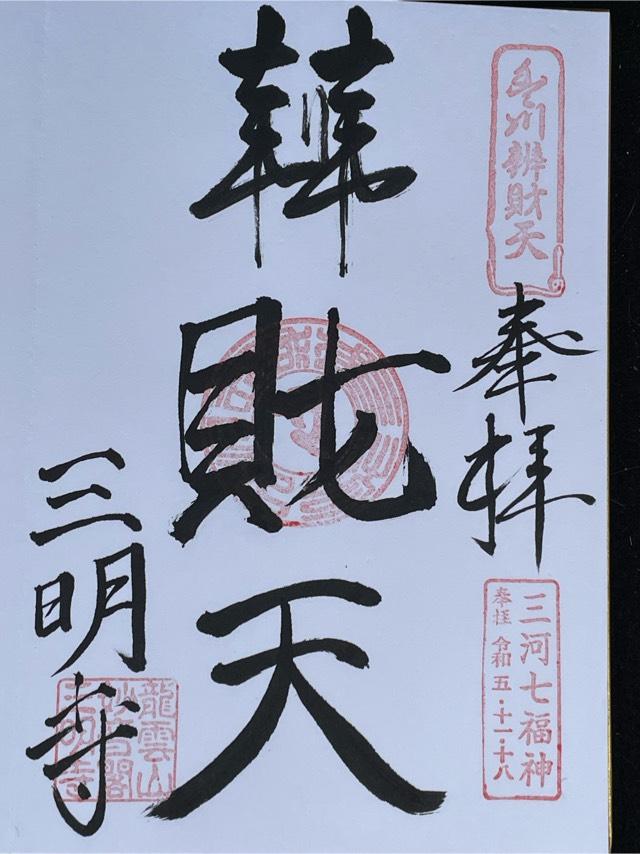 豊川辨財天
奉拝
三河七福神
奉拝 令和五・十一・十八
辨財天
三明寺
龍雲山
妙音閣
三明寺